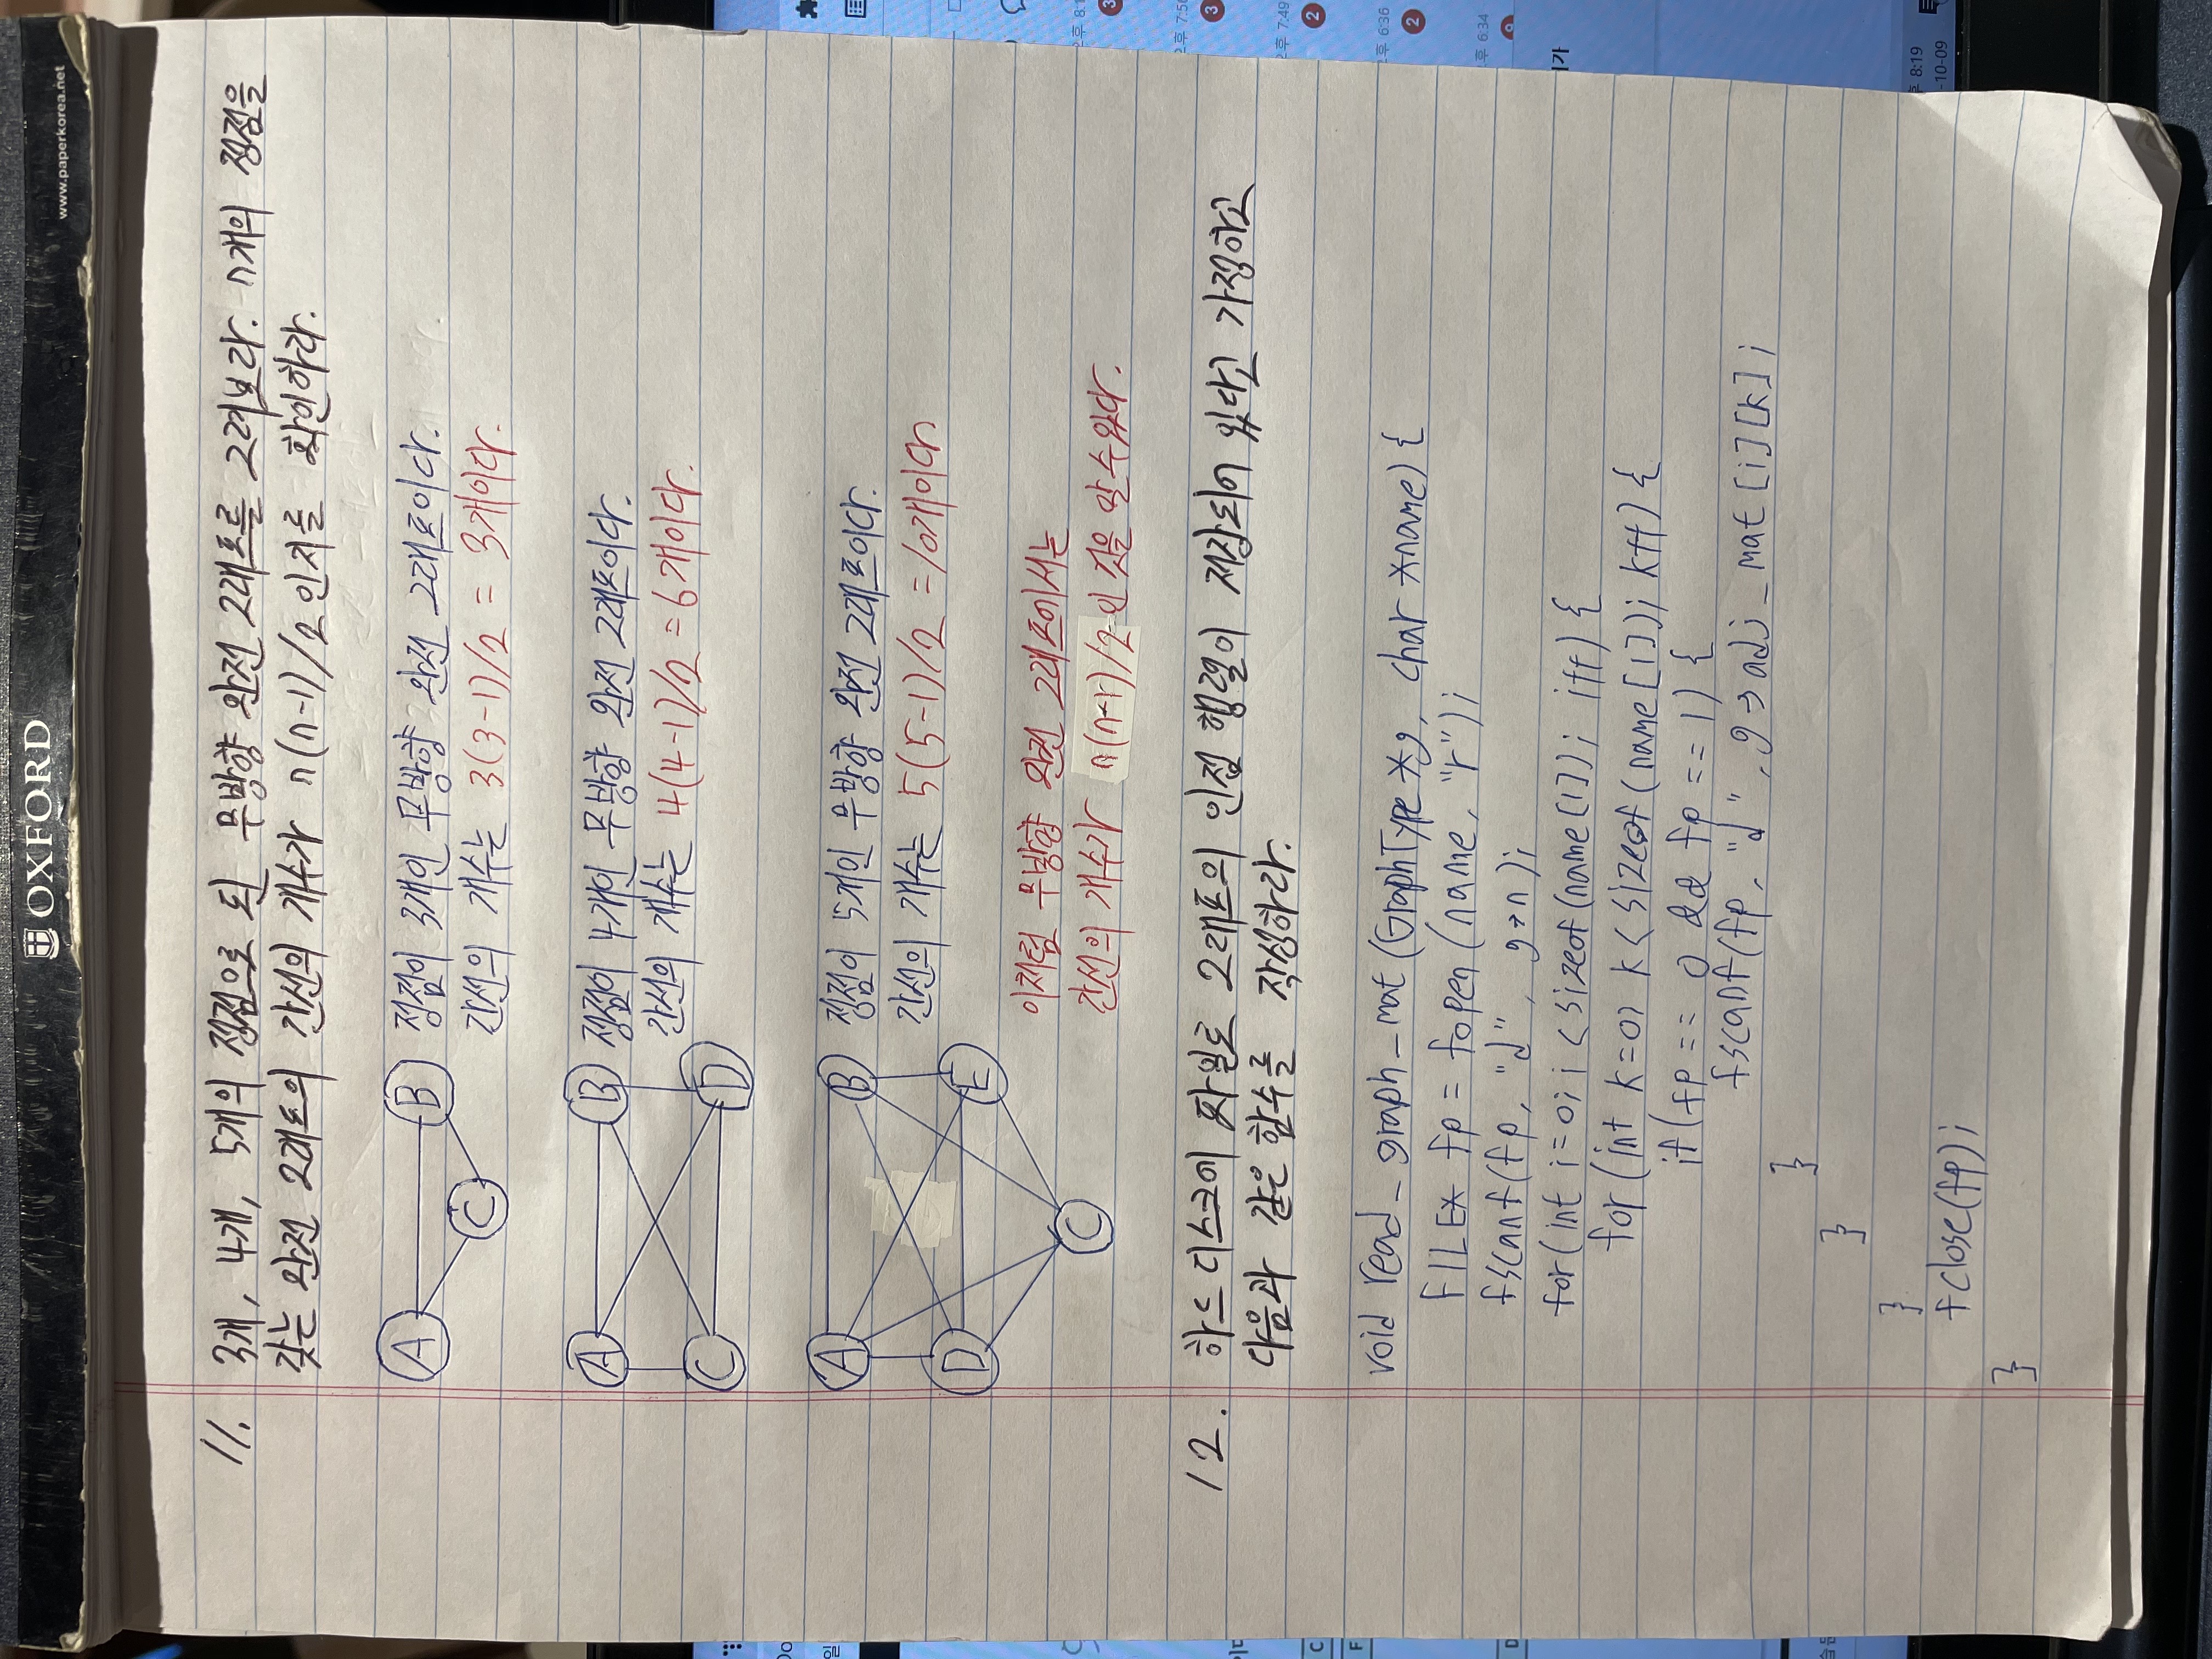 OXFORD
www.paperkorea.net
11. 3개, 4개, 5개의 정점으로 된 무방향 완전 그래프를 그려보라. n개의 정점을
갖는 완전 그래프의 간선의 개수가 n(n-1)/2 인지를 확인하라.
A B 정점이 3개인 무방향 완전 그래프이다.
C 간선의 개수는 3(3-1)/2 = 3개이다.
A B 정점이 4개인 무방향 완전 그래프이다.
간선의 개수는 4(4-1)/2 = 6개이다.
C D
A B 정점이 5개인 무방향 완전 그래프이다.
간선의 개수는 5(5-1)/2 = 10개이다
D E
이처럼 무방향 완전 그래프에서는
C 간선의 개수가 n(n-1)/2 인 것을 알 수 있다.
12. 하드 디스크에 파일로 그래프의 인접 행렬이 저장되어 있다고 가정하고
다음과 같은 함수를 작성하라.
void read_graph_mat (GraphType *g, char *name) {
FILE* fp = fopen (name, "r");
fscanf(fp, "d", g→n);
for (int i=0; i < sizeof(name[1]); i++) {
for (int k=0; k < sizeof (name[1]); k++) {
if (fp == 0 && fp == 1) {
fscanf(fp, "d", g→adj_mat[i][k];
}
}
}
fclose(fp);
}
오후 7:49
2
오후 6:36
2
6:34
8:19
-10-09